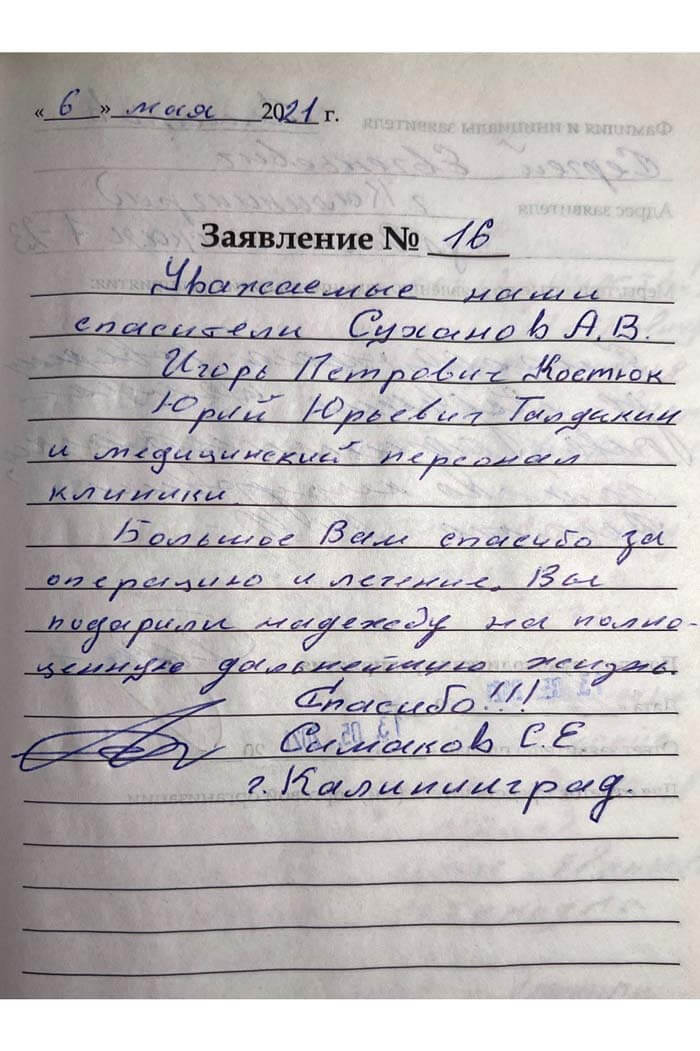 « 6 » мая 2021 г.
Заявление № 16
Уважаемые наши
спасители Суханов А.В.
Игорь Петрович Костюк
Юрий Юрьевич Талдыкин
и медицинский персонал
клиники.
Большое Вам спасибо за
операцию и лечение. Вы
подарили надежду на полно-
ценную дальнейшую жизнь.
Спасибо!!!
Симаков С.Е
г. Калининград.